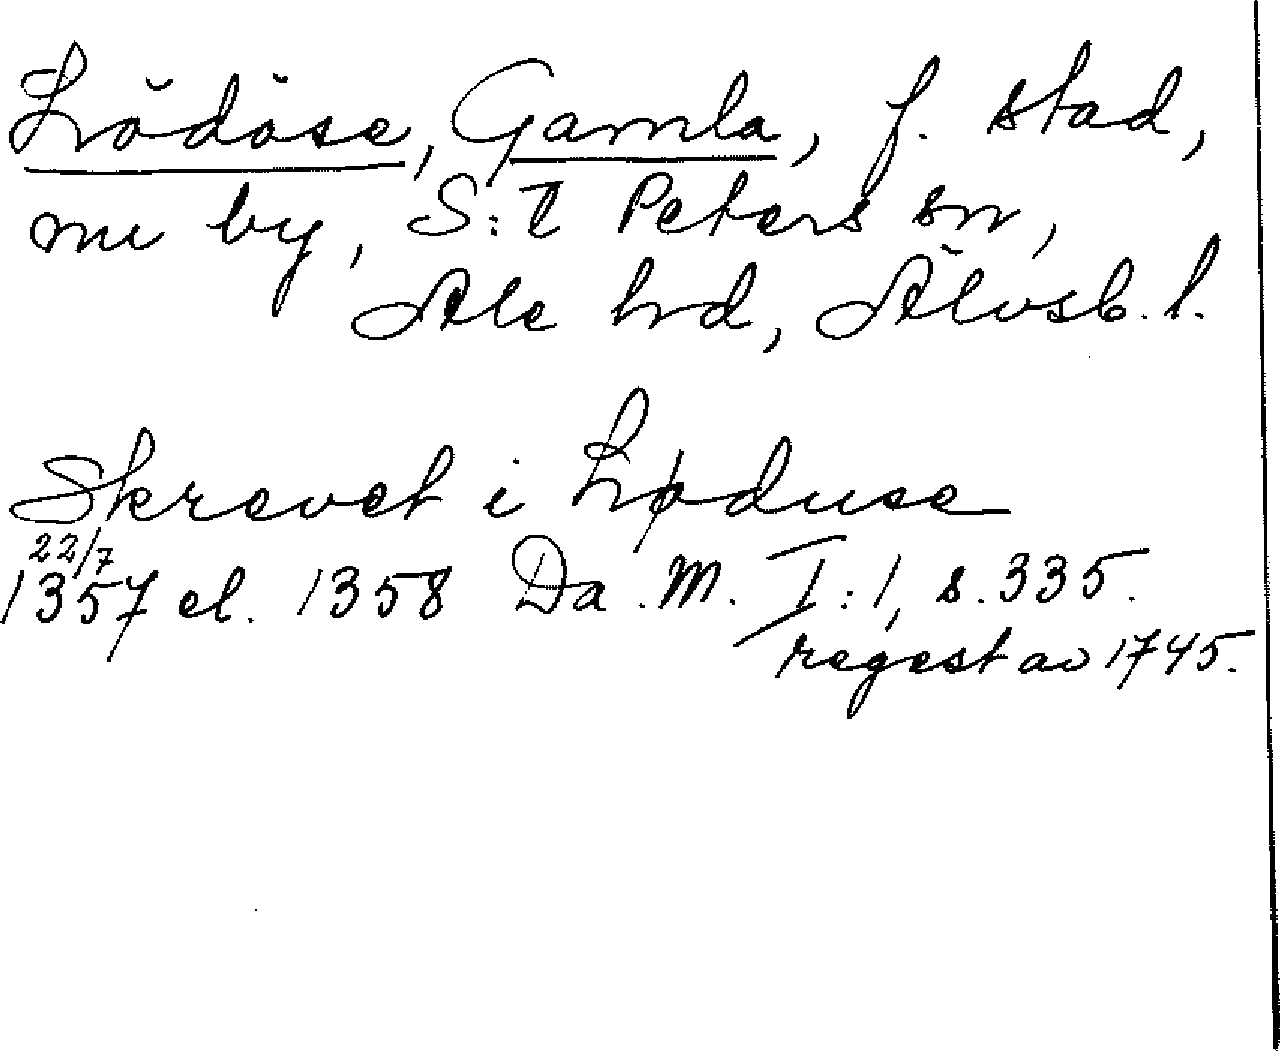 Lödöse, Gamla, f. stad,
nu by, S:t Peters sn,
Ale hrd, Älvsb. l.
Skrevet i Løduse
22/7
1357 el. 1358 Da. M. I:1, s. 335.
regest av 1745.